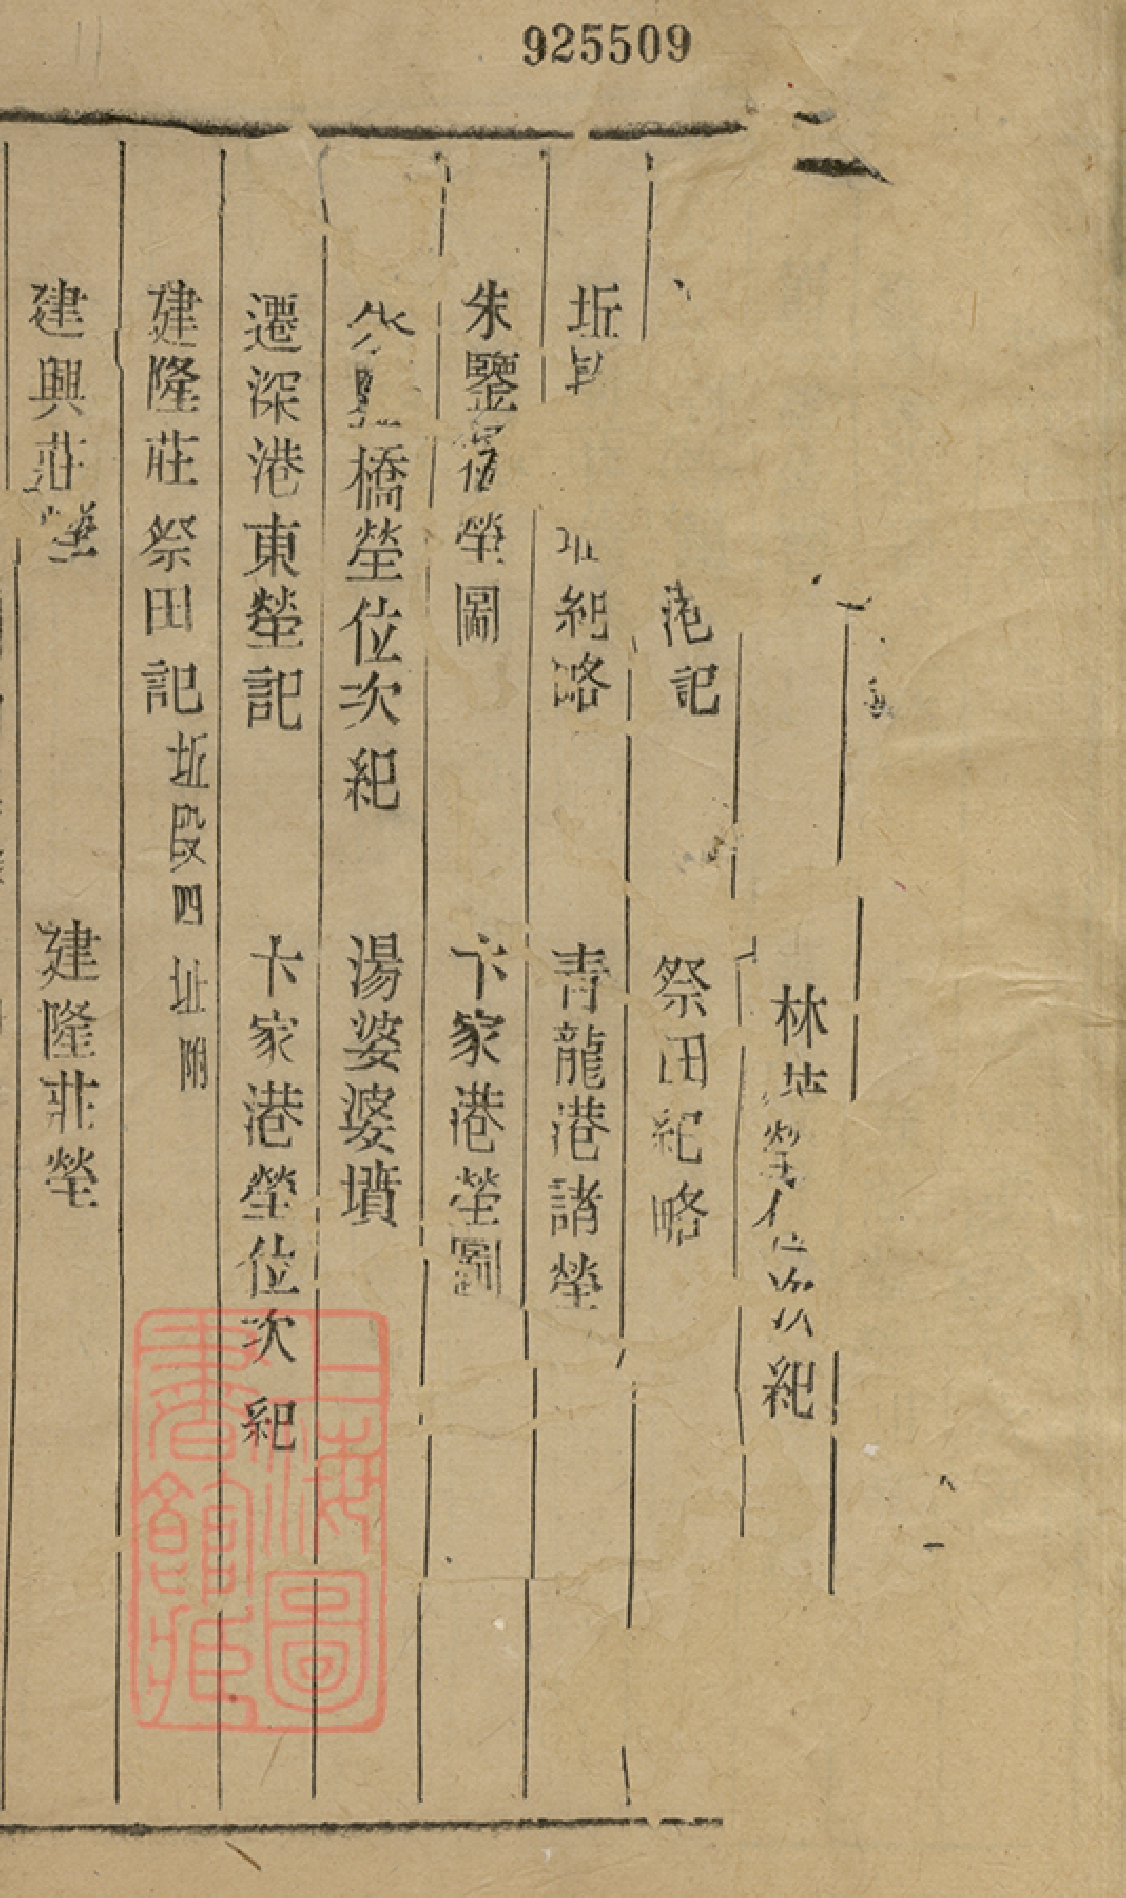 925509
林 塋位次紀
港記 祭田紀略
坵 紀略 青龍港諸塋
朱鑒 塋圖 卞家港塋圖
橋塋位次紀 湯婆婆墳
遷深港東塋記 卞家港塋位次紀
建隆莊祭田記坵段四址附
建興莊 建隆莊塋
上海圖書館藏